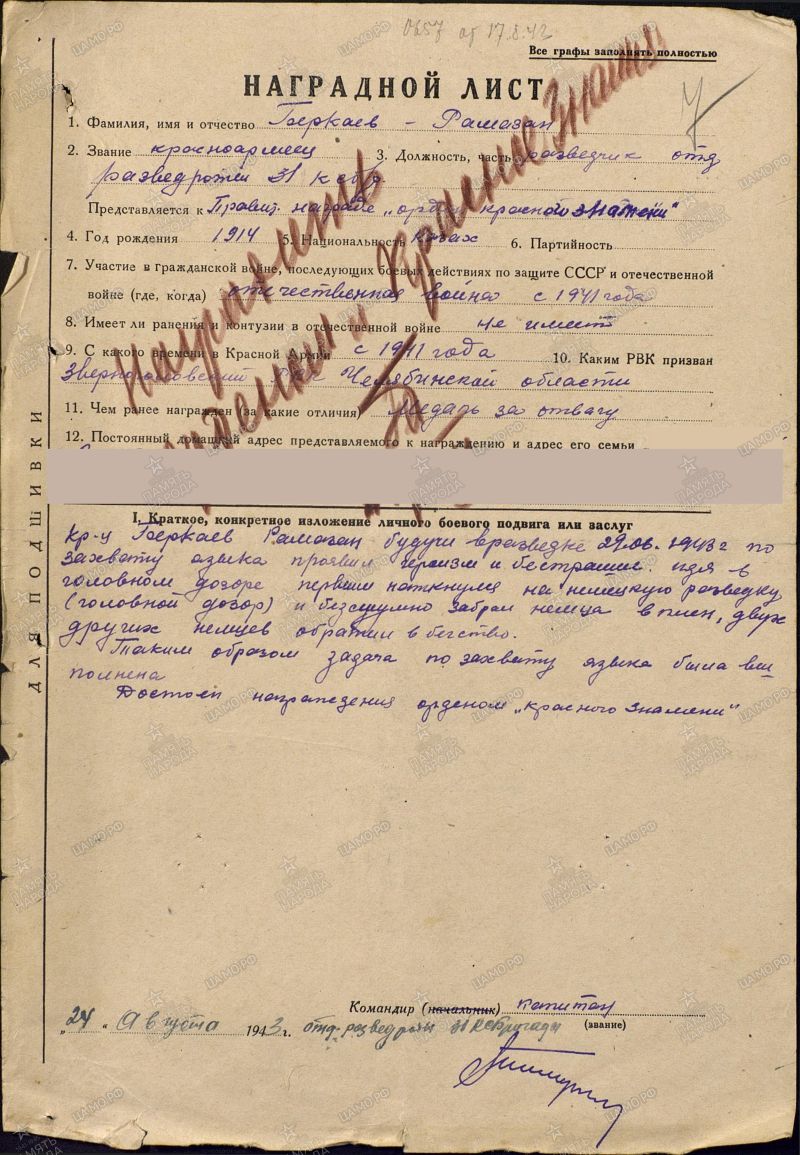 0657 от 17.8.43
Все графы заполнять полностью
НАГРАДНОЙ ЛИСТ
1. Фамилия, имя и отчество Беркаев – Рамазан
2. Звание красноармеец 3. Должность, часть разведчик отд
разведроты 31 к сбр
Представляется к Правит. награде „орден красной знамени"
4. Год рождения 1914 5. Национальность казах 6. Партийность
7. Участие в гражданской войне, последующих боевых действиях по защите СССР и отечественной
войне (где, когда) отечественная война с 1941 года
8. Имеет ли ранения и контузии в отечественной войне не имеет
9. С какого времени в Красной Армии с 1941 года 10. Каким РВК призван
Звериноголовский РВК Челябинской области
11. Чем ранее награжден (за какие отличия) Медаль за отвагу
12. Постоянный домашний адрес представляемого к награждению и адрес его семьи
I. Краткое, конкретное изложение личного боевого подвига или заслуг
кр-ц Беркаев Рамазан будучи в разведке 29.06.1943 г по
захвату языка проявил героизм и бестрашие. идя в
головном дозоре первым наткнулся на немецкую разведку
(головной дозор) и безшумно забрал немца в плен, двух
других немцев обратил в бегство.
Таким образом задача по захвату языка была вы-
полнена
Достоен награждения орденом „красного знамени"
Командир (начальник) капитан
(звание)
„24" Августа 1943 г. отд. разведроты 31 ксбригады
ДЛЯ ПОДШИВКИ
Красное Знамя
7
ЦАМО.РФ
ПАМЯТЬ НАРОДА